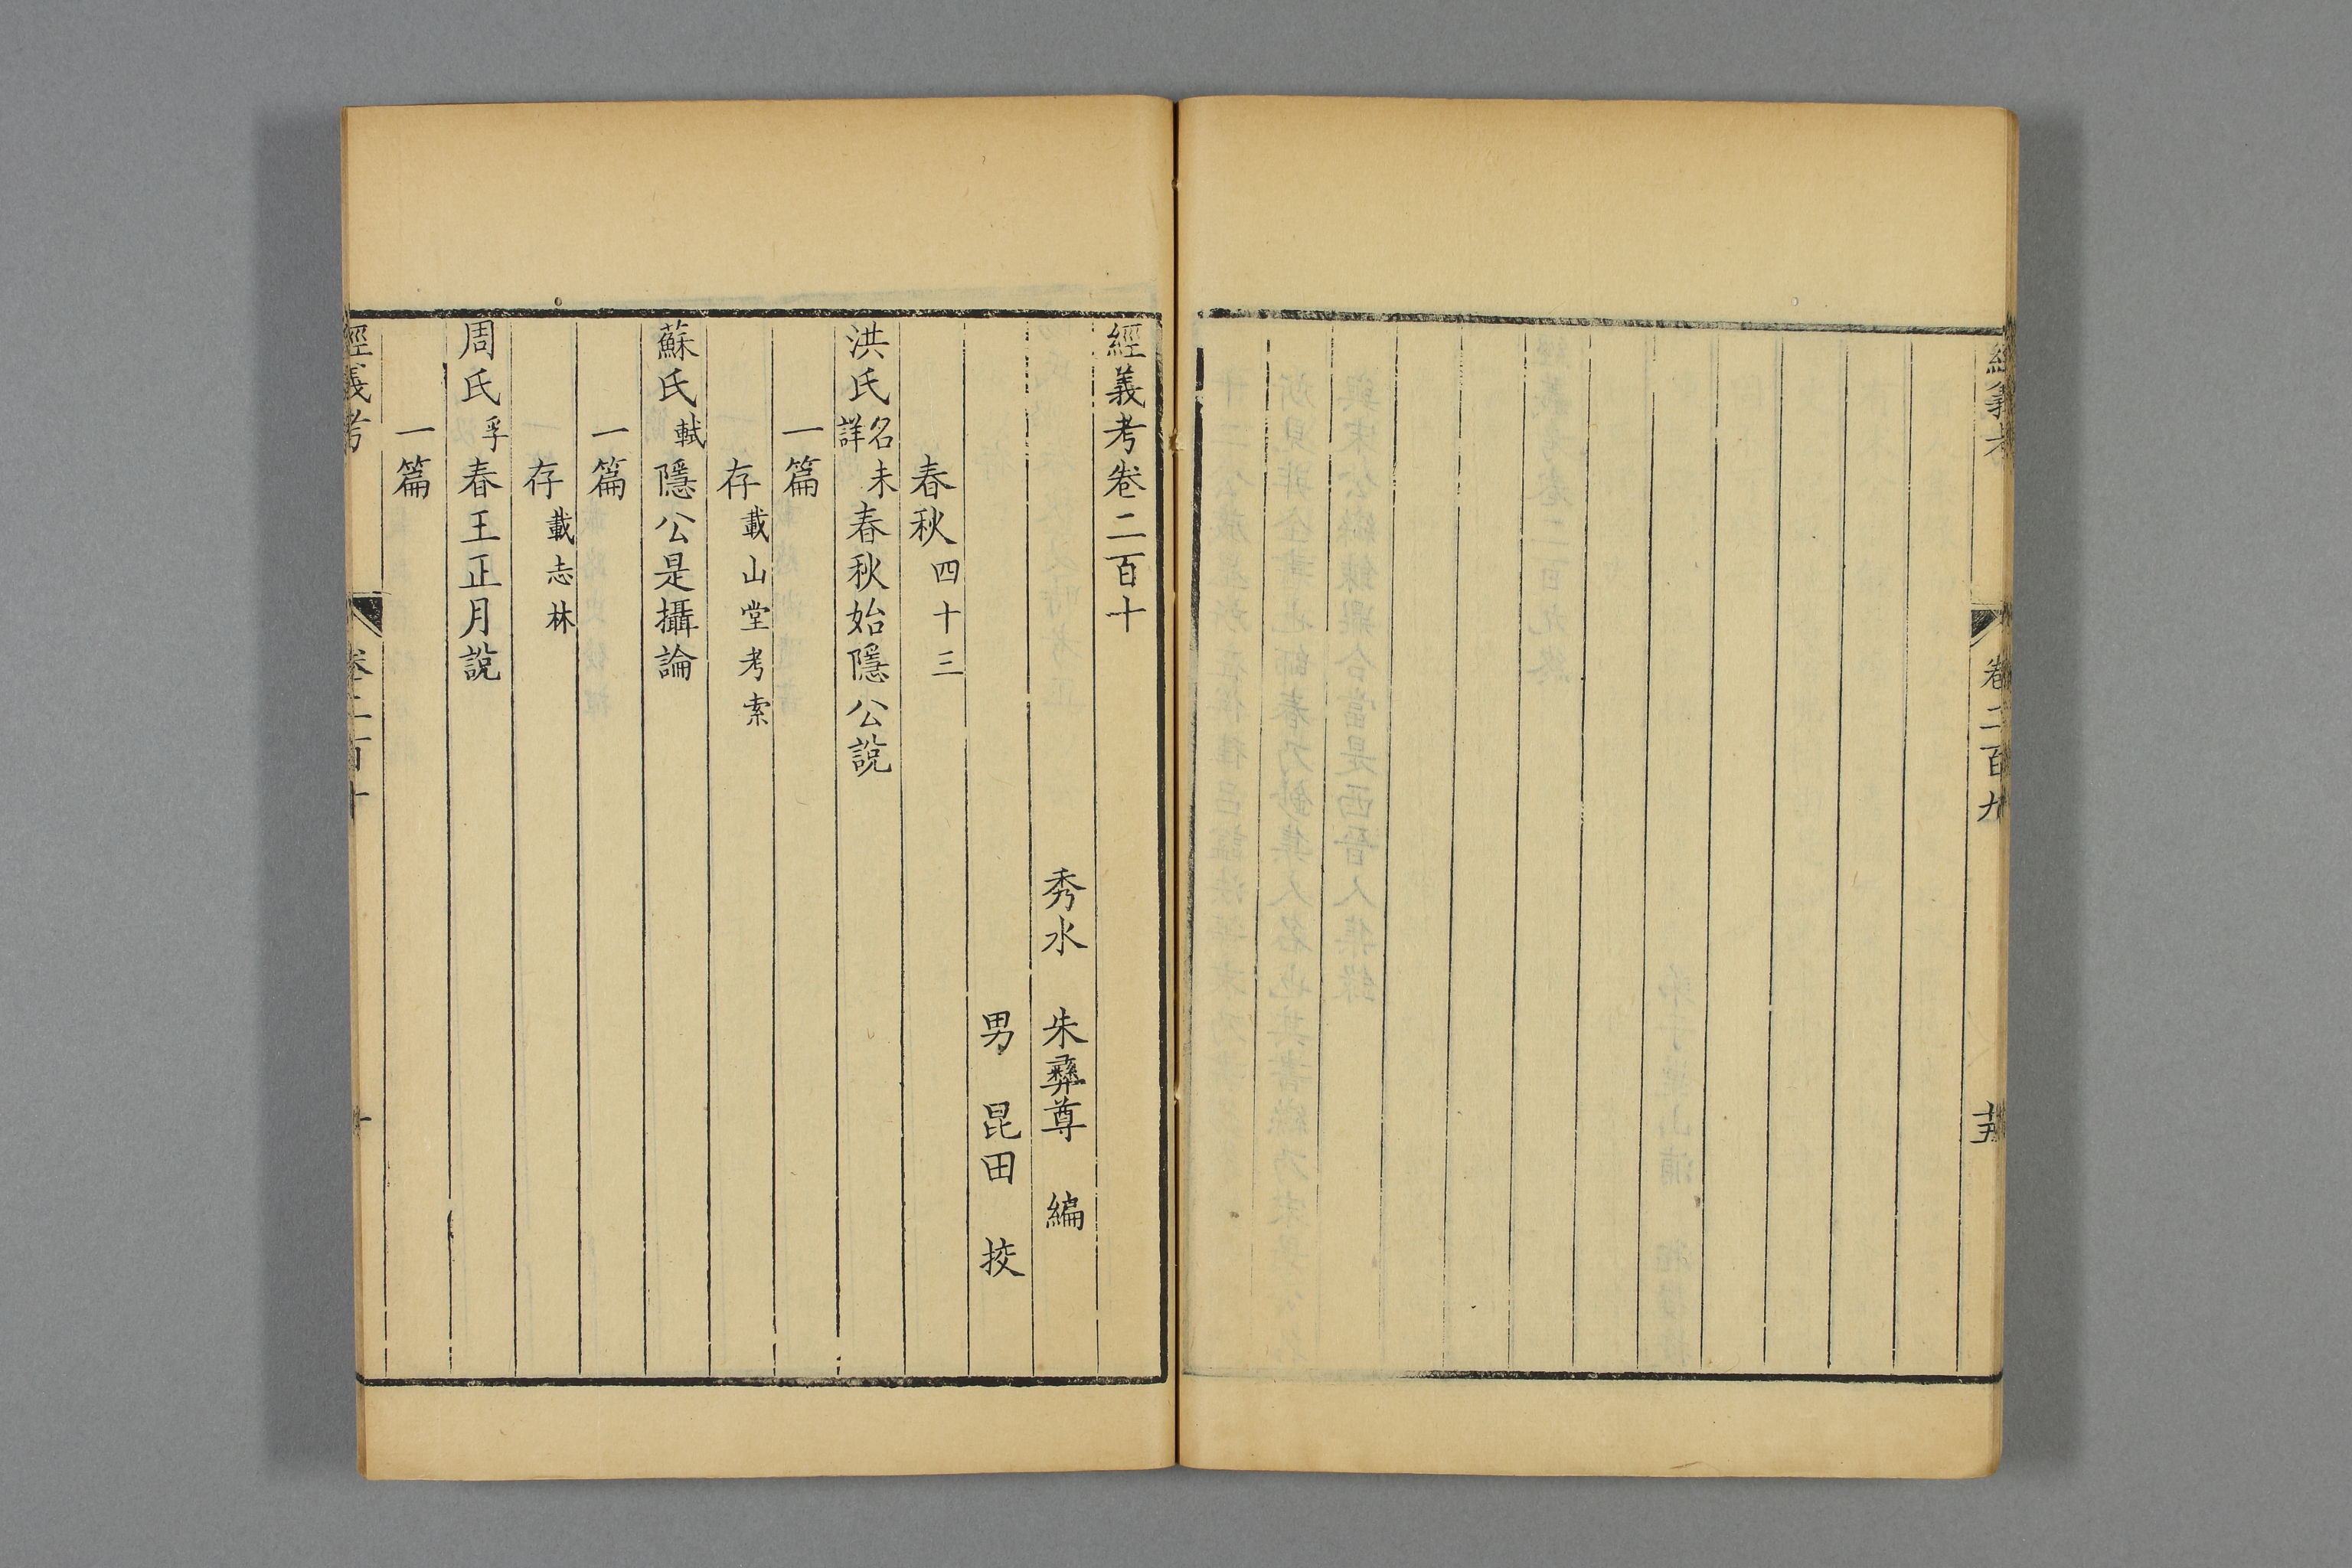 經義考
卷二百九
經義考卷二百十
秀水 朱彝尊 編
男 昆田 挍
春秋四十三
洪氏名未詳春秋始隱公說
一篇
存載山堂考索
蘇氏軾隱公是攝論
一篇
存載志林
周氏孚春王正月說
一篇
經義考
卷二百十